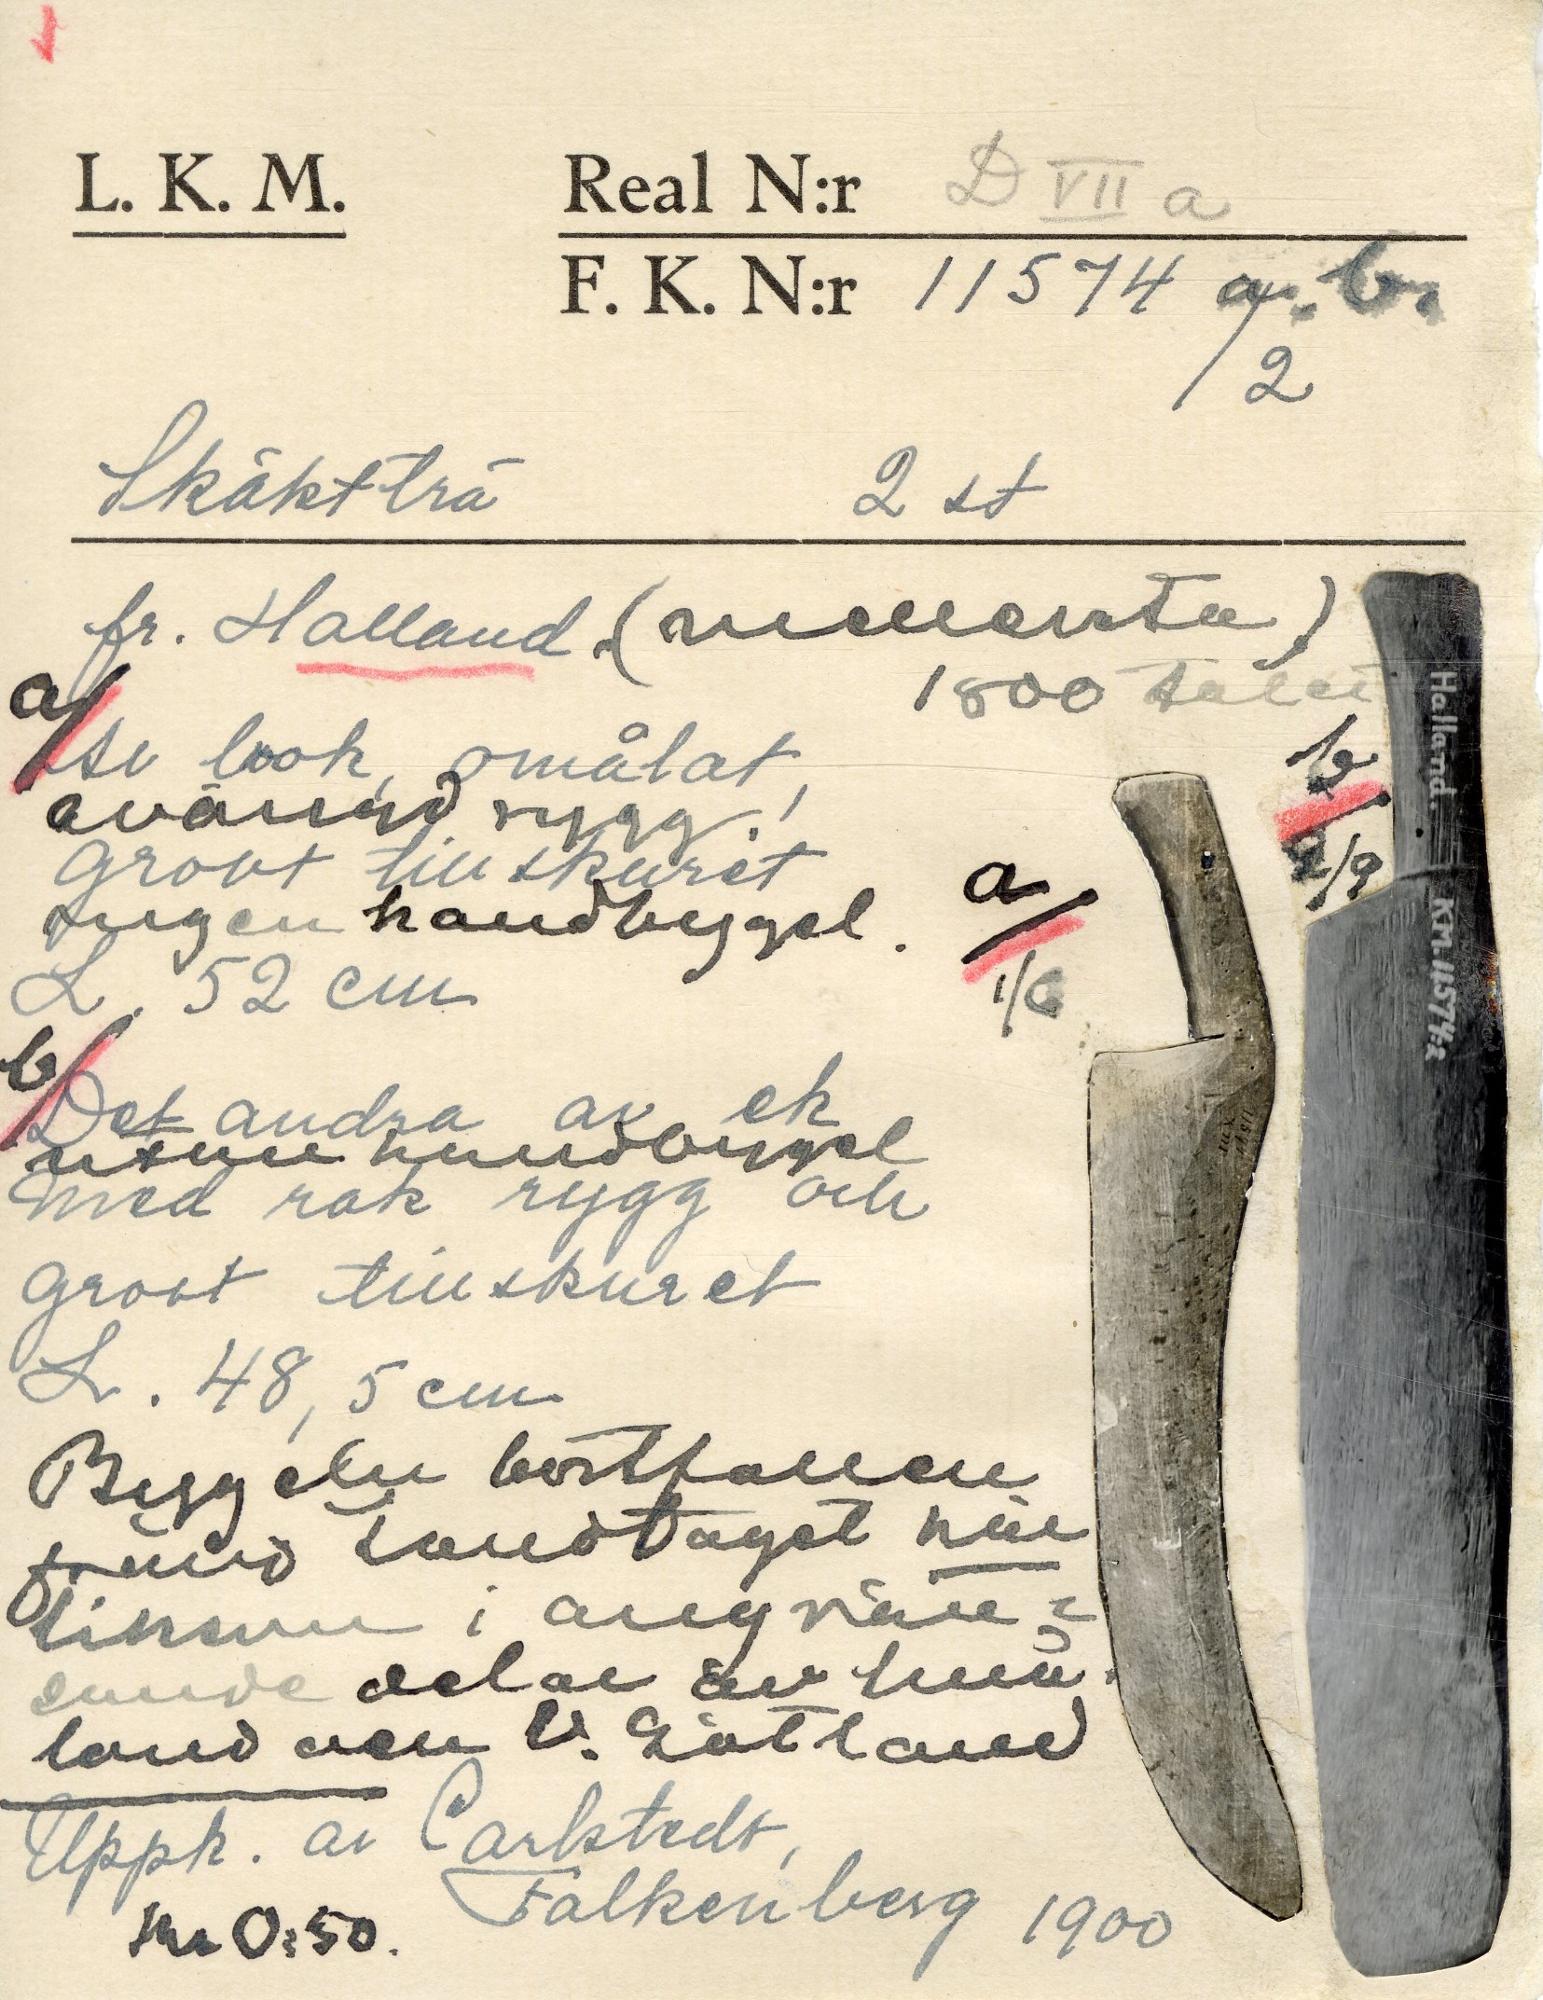 L. K. M.
Real N:r D VII a
F. K. N:r 11574 a. b.
/2
Skäktträ 2 st
fr. Halland. (mellersta)
1800 talet
a/
av bok, omålat,
svängd rygg!
grovt tillskuret
ingen handbygel.
L. 52 cm
b/
Det andra av ek
utan handbygel
med rak rygg och
grovt tillskuret
L. 48,5 cm
Bygeln bortfallen
handtaget här
liksom i angrän=
sande delar av Små-
land och V. Götland
Uppk. av Carlstedt,
Falkenberg 1900
Kr 0:50.
a/
1/6
b/
1/9
Halland. Km. 11574-2